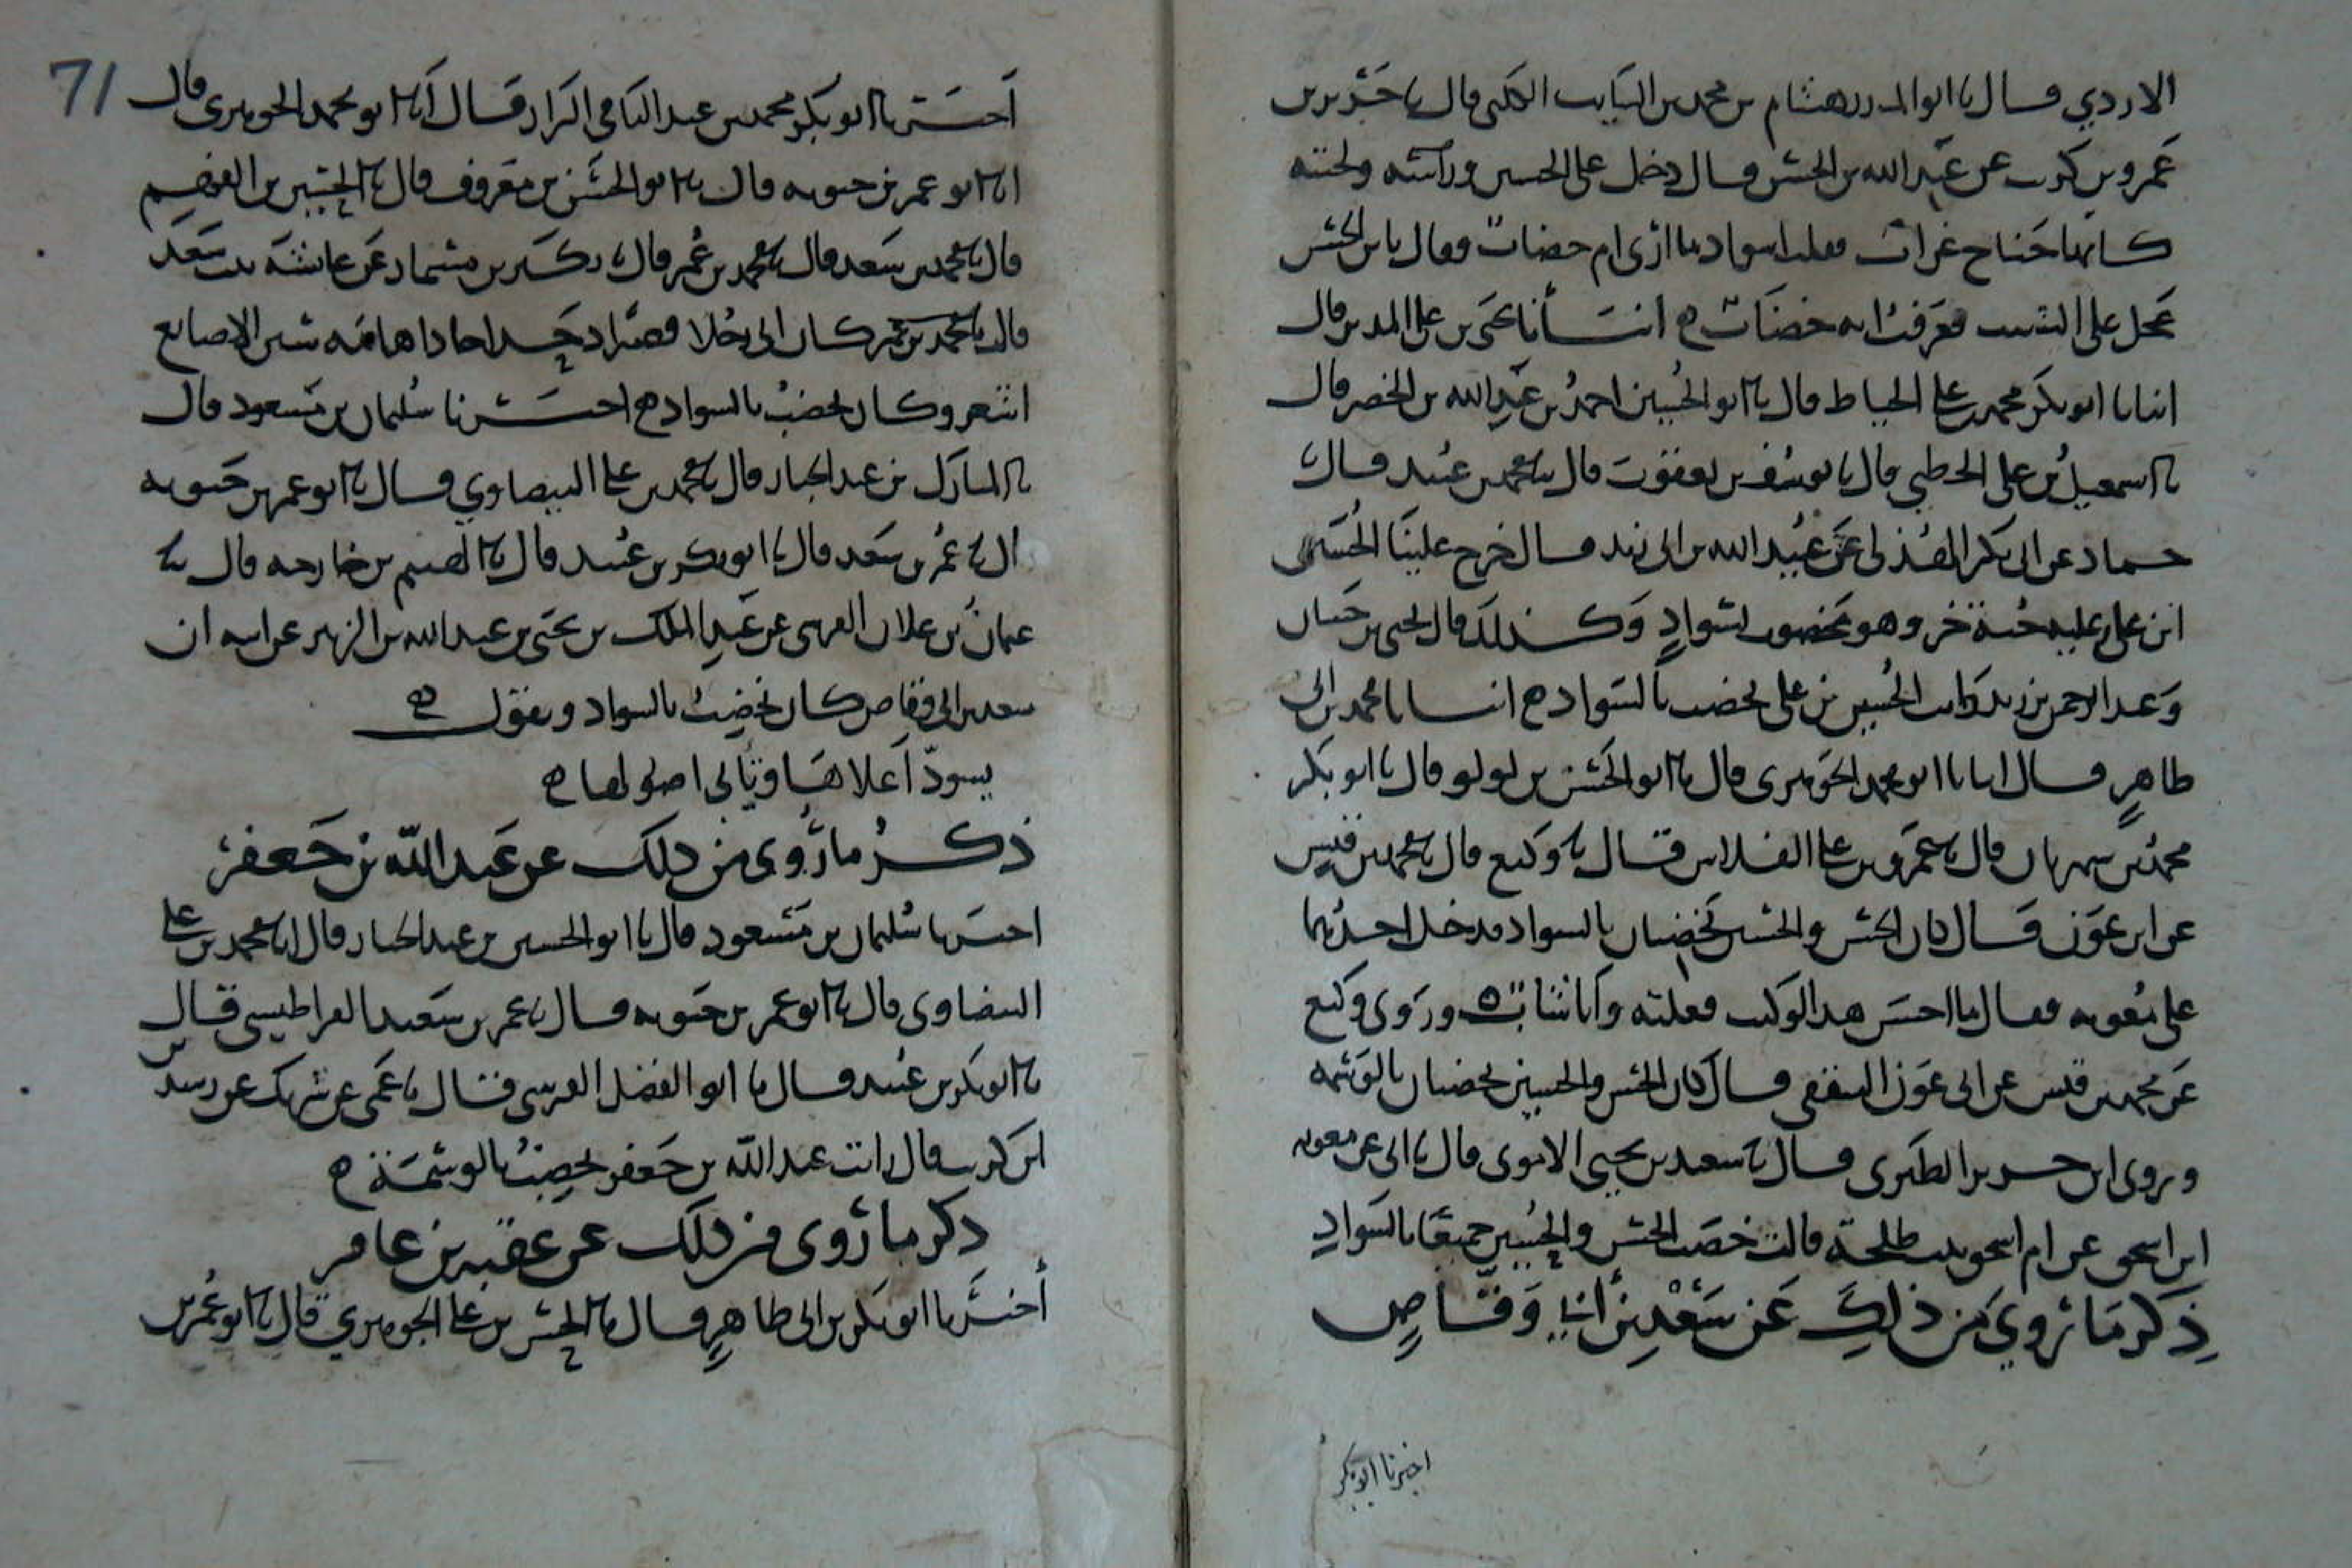 الازدي قال نا ابو المنذر هشام بن محمد بن السايب الكلبي قال نا جرير بن
عمرو بن كريب عن عبد الله بن الحسن قال دخل على الحسين ورأسه ولحيته
كانها جناح غراب فقلت اسواد ما ارى ام خضاب فقال يا بن الحسن
عجل على الشيب فعرفت انه خضاب ه انبأنا يحيى بن علي المدير قال
انبانا ابو بكر محمد بن علي الخياط قال نا ابو الحسين احمد بن عبد الله بن الخضر قال
نا اسمعيل بن علي الخطبي قال نا يوسف بن يعقوب قال نا محمد بن عبيد قال نا
حماد عن ابي بكر الهذلي عن عبيد الله بن ابي يزيد قال خرج علينا الحسين
ابن علي عليه جبة خز وهو مخضوب بسواد وكذلك قال يحيى بن حسان
وعبد الرحمن بن زيد رايت الحسين بن علي يخضب بالسواد ه انبانا محمد بن ابي
طاهر قال انبانا ابو محمد الجوهري قال نا ابو الحسن بن لولو قال نا ابو بكر
محمد بن سهريان قال نا عمرو بن علي الفلاس قال نا وكيع قال نا محمد بن قيس
عن ابن عون قال كان الحسن والحسين يخضبان بالسواد فدخل احدهما
على معوية فقال ما احسن هذا لو كنت فعلته وانا شاب ه وروى وكيع
عن محمد بن قيس عن ابي عون الثقفي قال كان الحسن والحسين يخضبان بالوسمة
وروى ابن جرير الطبري قال نا سعيد بن يحيى الاموي قال نا ابي عن معوية
ابن اسحق عن ام اسحق بنت طلحة قالت خضب الحسن والحسين جميعا بالسواد
ذكر ما روي من ذلك عن سعد بن أبي وقاص
اخبرنا ابو بكر
71
أخبرنا ابو بكر محمد بن عبد الباقي البزاز قال أنا ابو محمد الجوهري قال
انا ابو عمر بن حيويه قال نا ابو الحسن بن معروف قال نا الحسين بن الفهم
قال نا محمد بن سعد قال نا محمد بن عمر قال نا بكير بن مسمار عن عايشة بنت سعد
قالت كان ابي رجلا قصيرا دحداحا ذا هامة شثن الاصابع
اشعر وكان يخضب بالسواد ه اخبرنا سليمان بن مسعود قال
نا المبارك بن عبد الجبار قال نا محمد بن علي البيضاوي قال نا ابو عمر بن حيويه
قال نا عمر بن سعد قال نا ابو بكر بن عبيد قال نا الهيثم بن خارجه قال نا
عثمان بن علان القرشي عن عبد الملك بن يحيى بن عبد الله بن الزبير عن ابيه ان
سعد بن ابي وقاص كان يخضب بالسواد ويقول ه
يسود أعلاها وتأبى اصولها ه
ذكر ما روي من ذلك عن عبد الله بن جعفر
اخبرنا سليمان بن مسعود قال نا ابو الحسين بن عبد الجبار قال انا محمد بن علي
البيضاوي قال نا ابو عمر بن حيويه قال نا عمر بن سعد القراطيسي قال
نا ابو بكر بن عبيد قال نا ابو الفضل القرشي قال نا عمي عن شريك عن رشدين
ابن كريب قال رايت عبد الله بن جعفر يخضب بالوسمة ه
ذكر ما روي من ذلك عن عقبه بن عامر
أخبرنا ابو بكر بن ابي طاهر قال نا الحسن بن علي الجوهري قال نا ابو عمر بن